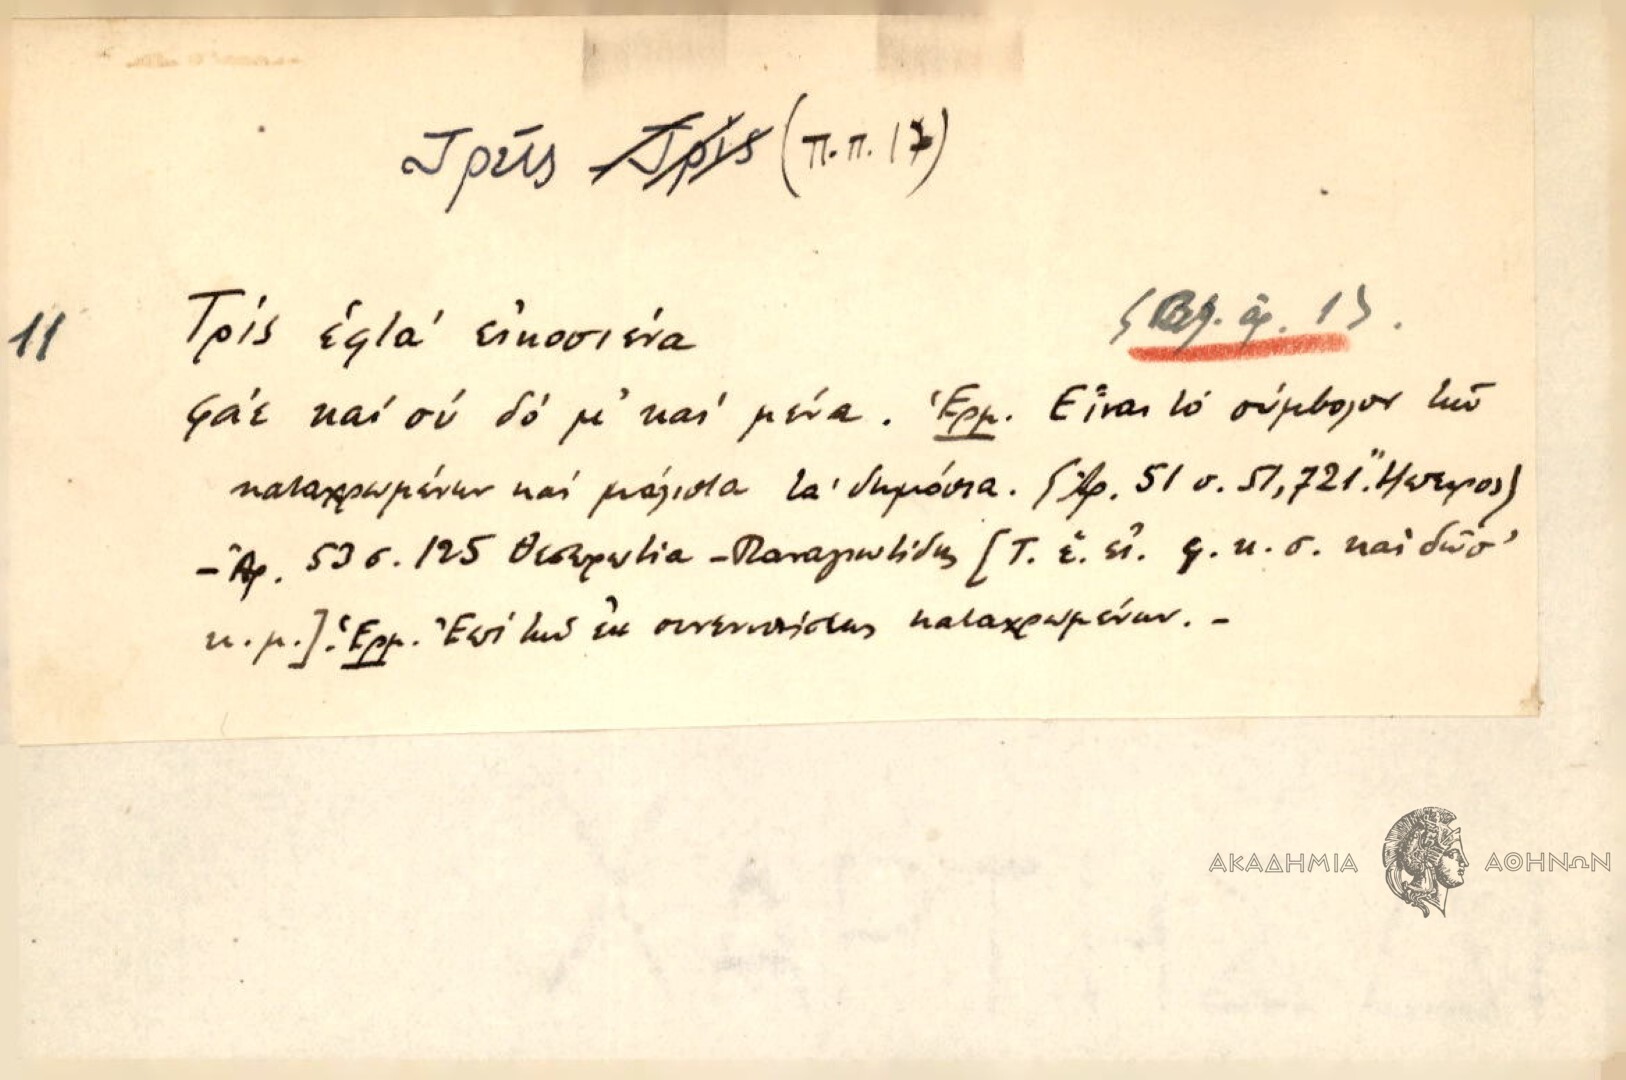 Τρεῖς Τρίς (π.π. 17)
11 Τρίς ἑφτά εἰκοσιένα {Βλ. ἀρ. 1}.
φάε καί σύ δό μ' καί μένα. Ἑρμ. Εἶναι τό σύμβολον τῶν
καταχρωμένων καί μάλιστα τά δημόσια. {Ἀρ. 51 σ. 51,721. Ἤπειρος}
– Ἀρ. 53 σ. 125 Θεσπρωτία – Παναγιωτίδης [Τ. ἑ. εἰ. φ. κ. σ. καί δῶσ'
κ. μ.]. Ἑρμ. Ἐπί τῶν ἐκ συνεννοήσεως καταχρωμένων. –
ΑΚΑΔΗΜΙΑ ΑΘΗΝΩΝ